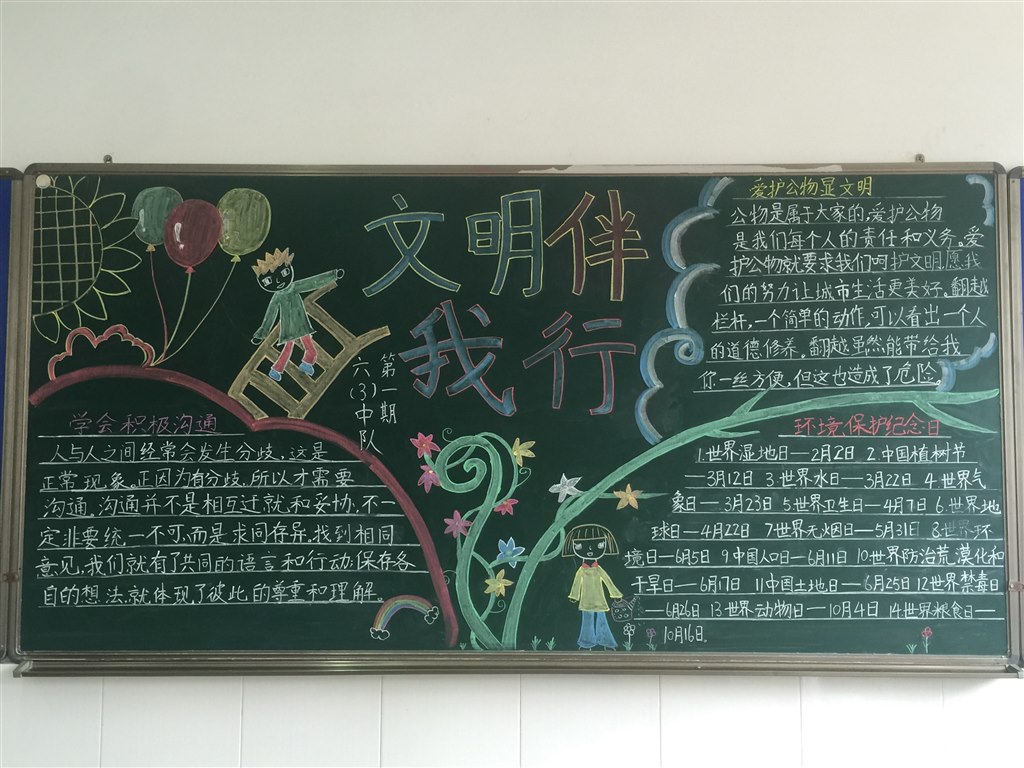 文明伴
我行
第一期
六(3)中队
学会积极沟通
人与人之间经常会发生分歧，这是
正常现象。正因为有分歧，所以才需要
沟通。沟通并不是相互迁就和妥协，不一
定非要统一不可，而是求同存异，找到相同
意见，我们就有了共同的语言和行动，保存各
自的想法，就体现了彼此的尊重和理解。
爱护公物显文明
公物是属于大家的，爱护公物
是我们每个人的责任和义务。爱
护公物就要求我们呵护文明，愿我
们的努力让城市生活更美好。翻越
栏杆，一个简单的动作，可以看出一个人
的道德修养。翻越虽然能带给我
你一丝方便，但这也造成了危险。
环境保护纪念日
1.世界湿地日—2月2日 2.中国植树节
—3月12日 3.世界水日—3月22日 4.世界气
象日—3月23日 5.世界卫生日—4月7日 6.世界地
球日—4月22日 7.世界无烟日—5月31日 8.世界环
境日—6月5日 9.中国人口日—6月11日 10.世界防治荒漠化和
干旱日—6月17日 11.中国土地日—6月25日 12.世界禁毒日
—6月26日 13.世界动物日—10月4日 14.世界粮食日—
10月16日.